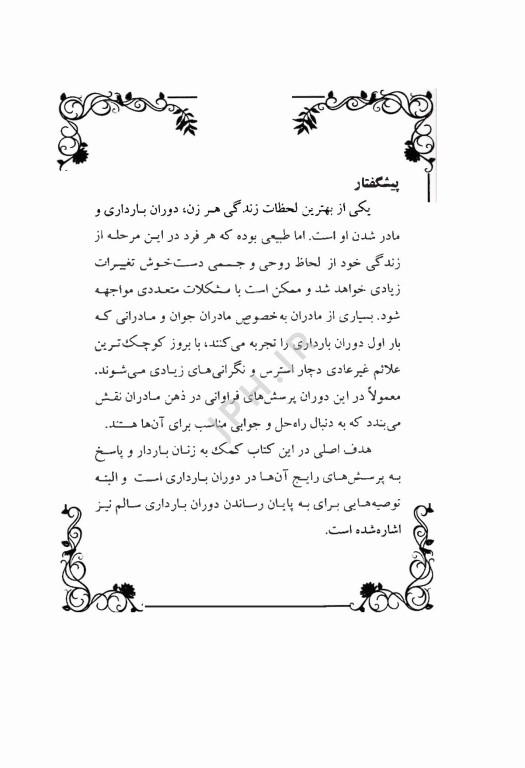 پیشگفتار
یکی از بهترین لحظات زندگی هر زن، دوران بارداری و
مادر شدن او است. اما طبیعی بوده که هر فرد در این مرحله از
زندگی خود از لحاظ روحی و جسمی دست‌خوش تغییرات
زیادی خواهد شد و ممکن است با مشکلات متعددی مواجهه
شود. بسیاری از مادران به‌خصوص مادران جوان و مادرانی که
بار اول دوران بارداری را تجربه می‌کنند، با بروز کوچک‌ترین
علائم غیرعادی دچار استرس و نگرانی‌های زیادی می‌شوند.
معمولاً در این دوران پرسش‌های فراوانی در ذهن مادران نقش
می‌بندد که به دنبال راه‌حل و جوابی مناسب برای آن‌ها هستند.
هدف اصلی در این کتاب کمک به زنان باردار و پاسخ
به پرسش‌های رایج آن‌ها در دوران بارداری است و البته
توصیه‌هایی برای به پایان رساندن دوران بارداری سالم نیز
اشاره‌شده است.
JPH.IR